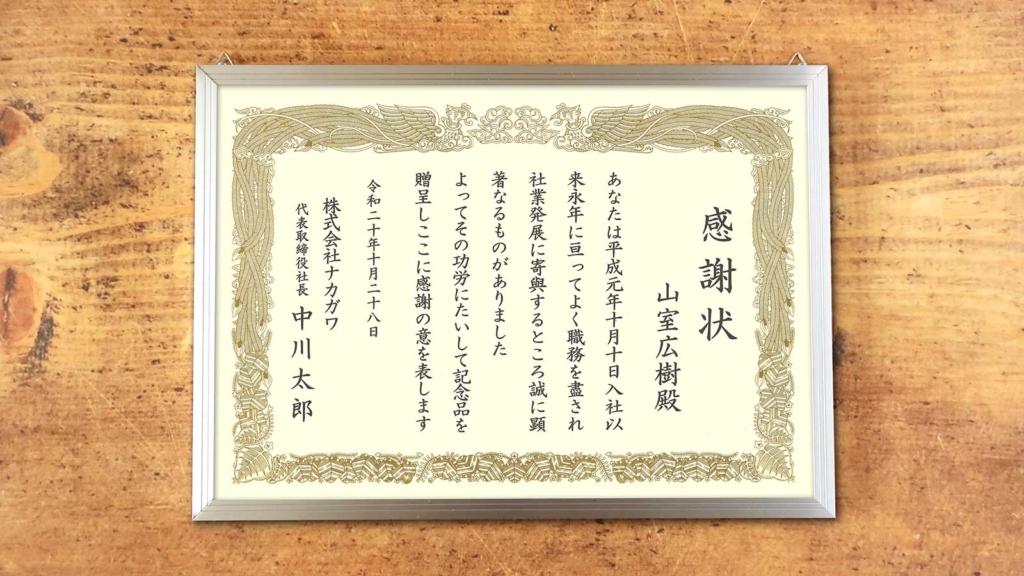 感謝状
山室広樹殿
あなたは平成元年十月十日入社以
来永年に亘ってよく職務を盡され
社業発展に寄與するところ誠に顕
著なるものがありました
よってその功労にたいして記念品を
贈呈しここに感謝の意を表します
令和二十年十月二十八日
株式会社ナカガワ
代表取締役社長 中川太郎